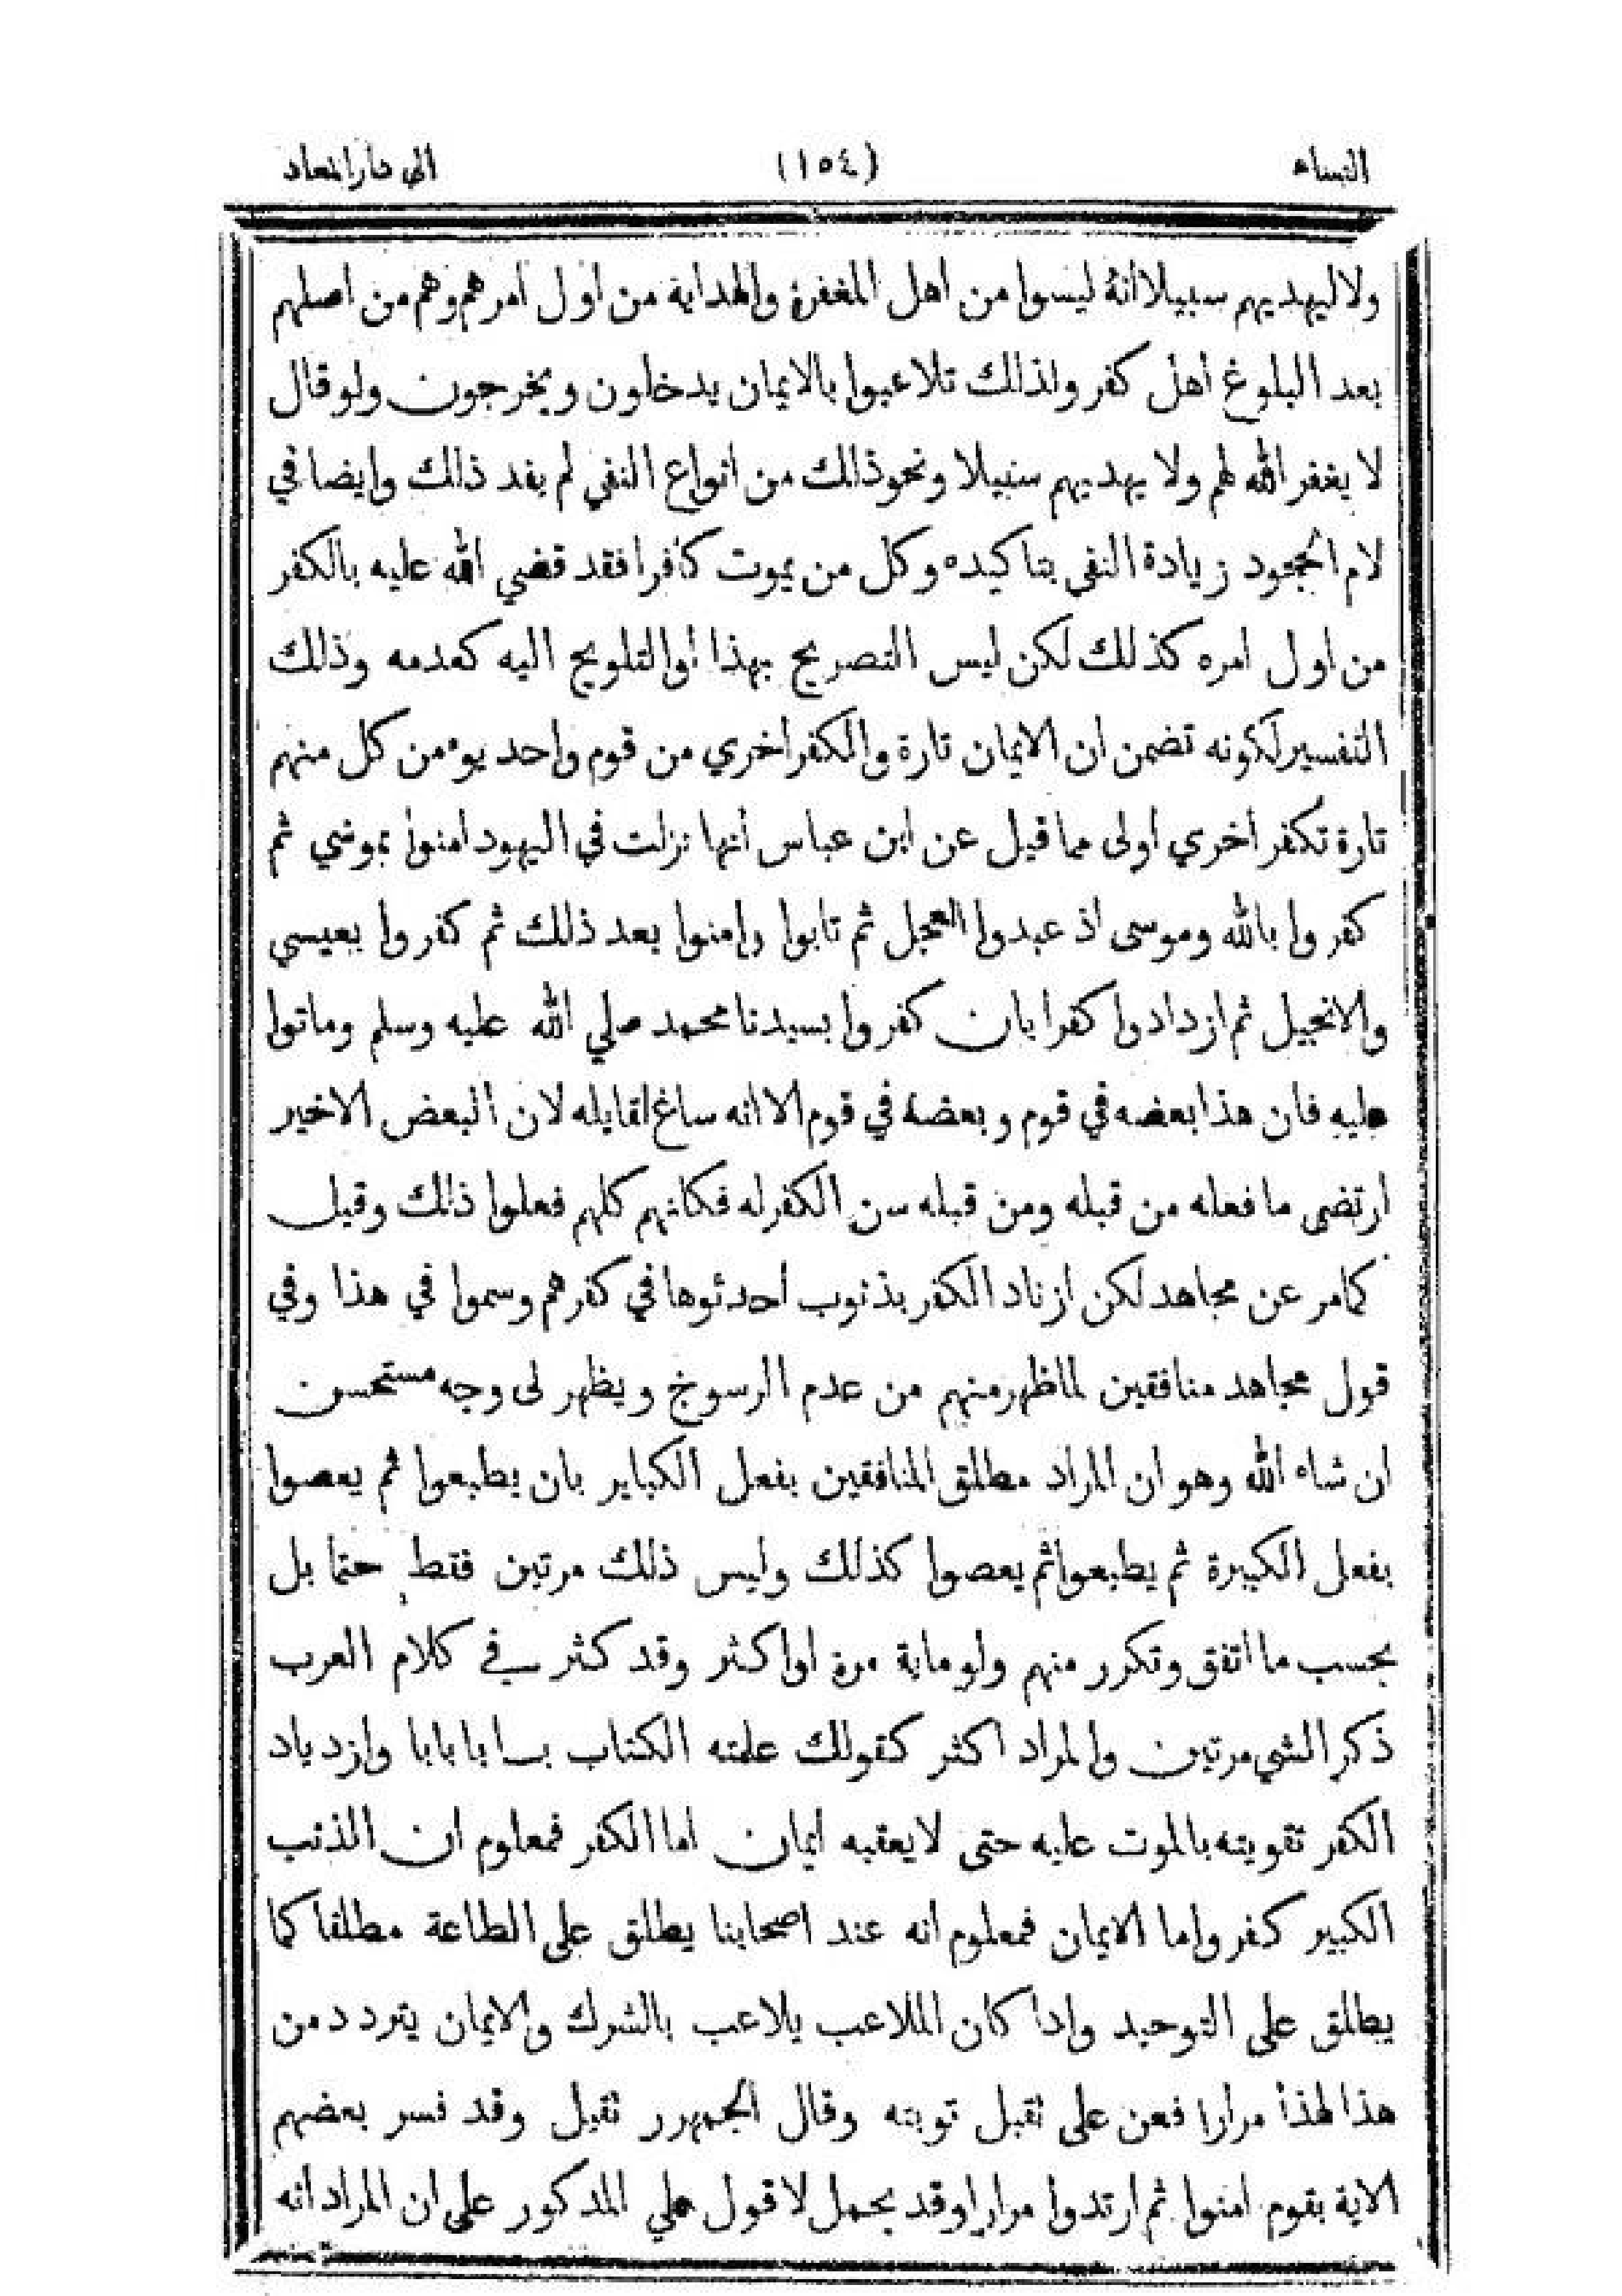 النساء (١٥٤) الى دار المعاد
ولا ليهديهم سبيلا انه ليسوا من اهل المغفرة والهداية من اول امرهم وهم من اصلهم
بعد البلوغ أهل كفر ولذلك تلاعبوا بالايمان يدخلون ويخرجون ولو قال
لا يغفر الله لهم ولا يهديهم سبيلا ونحو ذلك من انواع النفي لم يفد ذلك وايضا في
لام الجحود زيادة النفي بتاكيده وكل من يموت كافرا فقد قضي الله عليه بالكفر
من اول امره كذلك لكن ليس التصريح بهذا أو التلويح اليه كعدمه وذلك
التفسير لكونه تضمن ان الايمان تارة والكفر اخري من قوم واحد يومن كل منهم
تارة تكفر أخري أولى مما قيل عن ابن عباس أنها نزلت في اليهود امنوا بموسي ثم
كفروا بالله وموسى اذ عبدوا العجل ثم تابوا وامنوا بعد ذلك ثم كفروا بعيسي
والانجيل ثم ازدادوا كفرا بان كفروا بسيدنا محمد صلي الله عليه وسلم وماتوا
عليه فان هذا بعضه في قوم وبعضه في قوم الا انه ساغ لقايله لان البعض الاخير
ارتضى ما فعله من قبله ومن قبله سن الكفر له فكانهم كلهم فعلوا ذلك وقيل
كما مر عن مجاهد لكن ازداد الكفر بذنوب أحدثوها في كفرهم وسموا في هذا وفي
قول مجاهد منافقين لما ظهر منهم من عدم الرسوخ ويظهر لى وجه مستحسن
ان شاء الله وهو ان المراد مطلق المنافقين بفعل الكباير بان يطيعوا ثم يعصوا
بفعل الكبيرة ثم يطيعوا ثم يعصوا كذلك وليس ذلك مرتين فقط حتما بل
بحسب ما اتفق وتكرر منهم ولو ماية مرة او اكثر وقد كثر في كلام العرب
ذكر الشي مرتين والمراد اكثر كقولك علمته الكتاب بابا بابا وازدياد
الكفر تقويته بالموت عليه حتى لا يعقبه ايمان اما الكفر فمعلوم ان الذنب
الكبير كفر واما الايمان فمعلوم انه عند اصحابنا يطلق على الطاعة مطلقا كما
يطلق على التوحيد وإذا كان الملاعب يلاعب بالشرك والايمان يتردد من
هذا لهذا مرارا فعن على تقبل توبته وقال الجمهور تقبل وقد فسر بعضهم
الاية بقوم امنوا ثم ارتدوا مرارا وقد يحمل لا قول علي المذكور على ان المراد انه